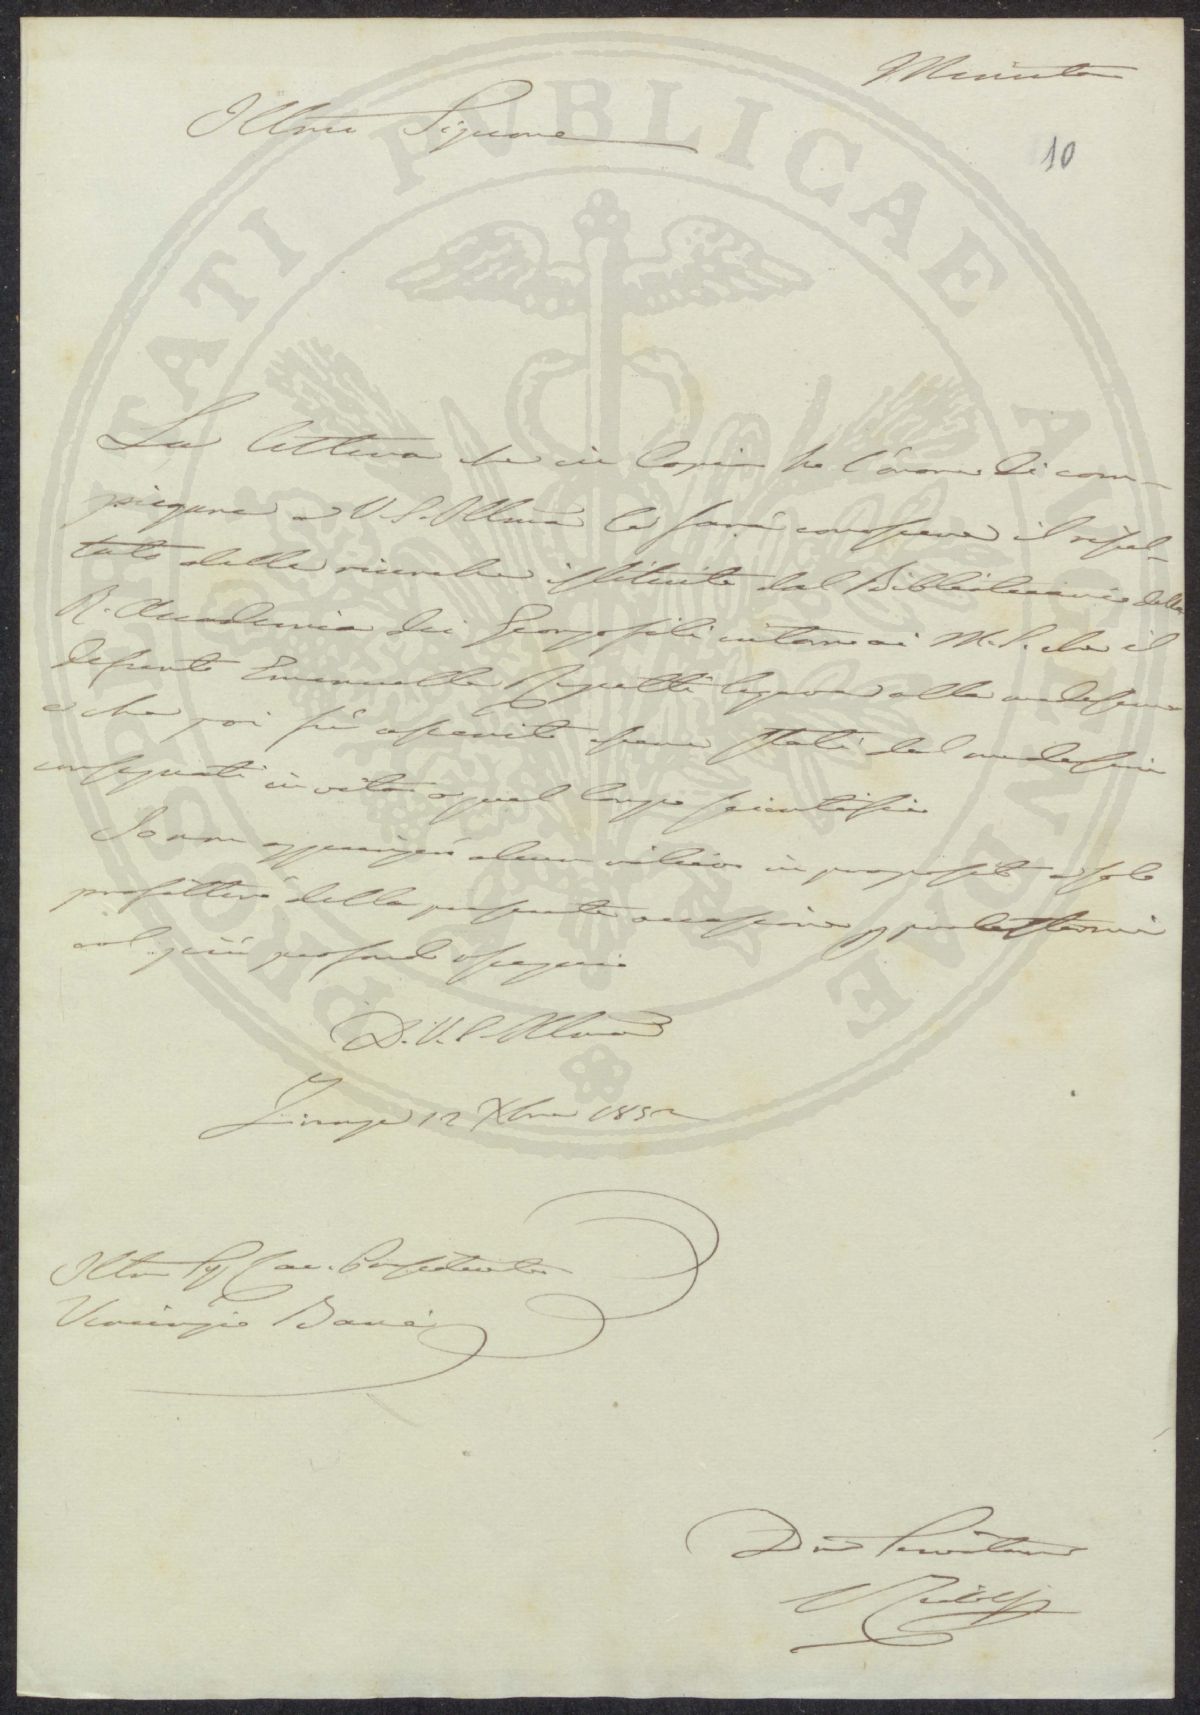 Minuta
Illmo Signore
10
La lettera che in Copia ho l'onore di com-
piegare a V. S. Illma le farà conoscere il risul-
tato delle ricerche istituite dal Bibliotecario della
R. Accademia dei Georgofili intorno ai M.S. che il
defunto Emanuelle Repetti legava alla medesima
e che poi fù asserito essere stati dal medesimo
consegnati in vita a quel Corpo scientifico
Io non aggiungerò alcun rilievo in proposito e solo
profitterò della presente occasione per protestarmi
col più profondo ossequio
D. V. S. Illma
Firenze 12 Xbre 1852
Illmo Sig Cav. Presidente
Vincenzio
Dev Servitore
Ridolfi
PROSPERITATI PVBLICAE AVGENDAE